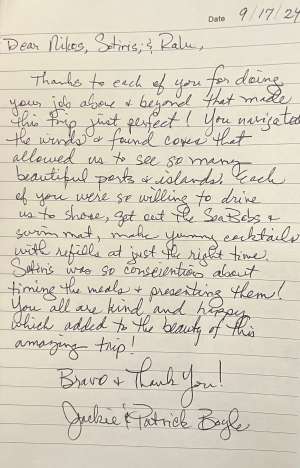 Date 9/17/24
Dear Nikos, Sotiris, & Ralu,
Thanks to each of you for doing
your job above & beyond that made
this trip just perfect! You navigated
the winds & found coves that
allowed us to see so many
beautiful ports & islands. Each
of you were so willing to drive
us to shore, got out the SeaBobs &
swim mat, make yummy cocktails
with refills at just the right time.
Sotiris was so conscientious about
timing the meals & presenting them!
You all are kind and happy
which added to the beauty of this
amazing trip!
Bravo & Thank You!
Jackie & Patrick Boyle